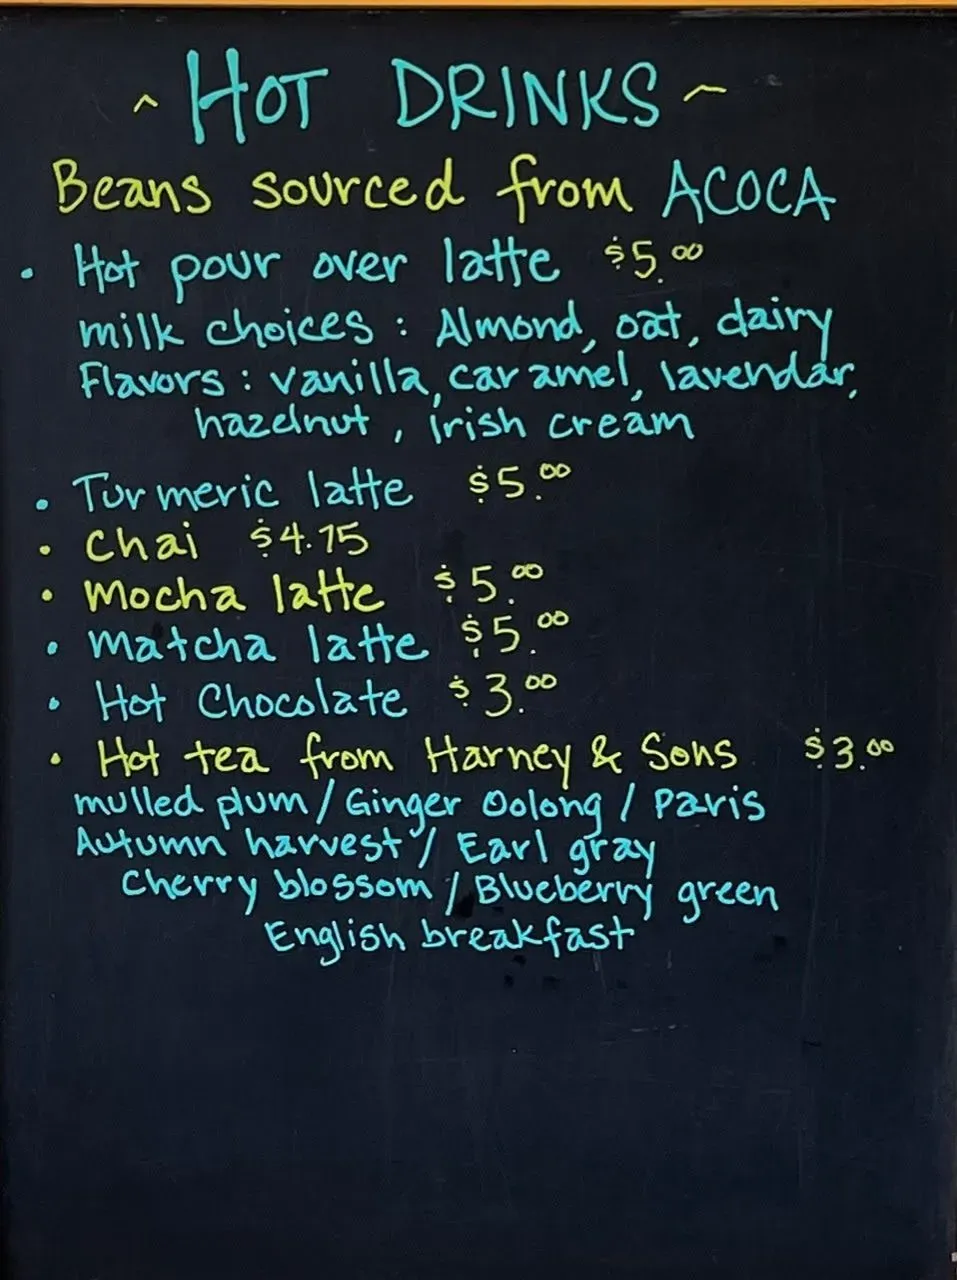 ~ HOT DRINKS ~
Beans sourced from ACOCA
• Hot pour over latte $5.00
milk choices : Almond, oat, dairy
Flavors : vanilla, caramel, lavendar,
hazelnut, irish cream
• Turmeric latte $5.00
• Chai $4.75
• Mocha latte $5.00
• Matcha latte $5.00
• Hot Chocolate $3.00
• Hot tea from Harney & Sons $3.00
mulled plum / Ginger Oolong / Paris
Autumn harvest / Earl gray
Cherry blossom / Blueberry green
English breakfast